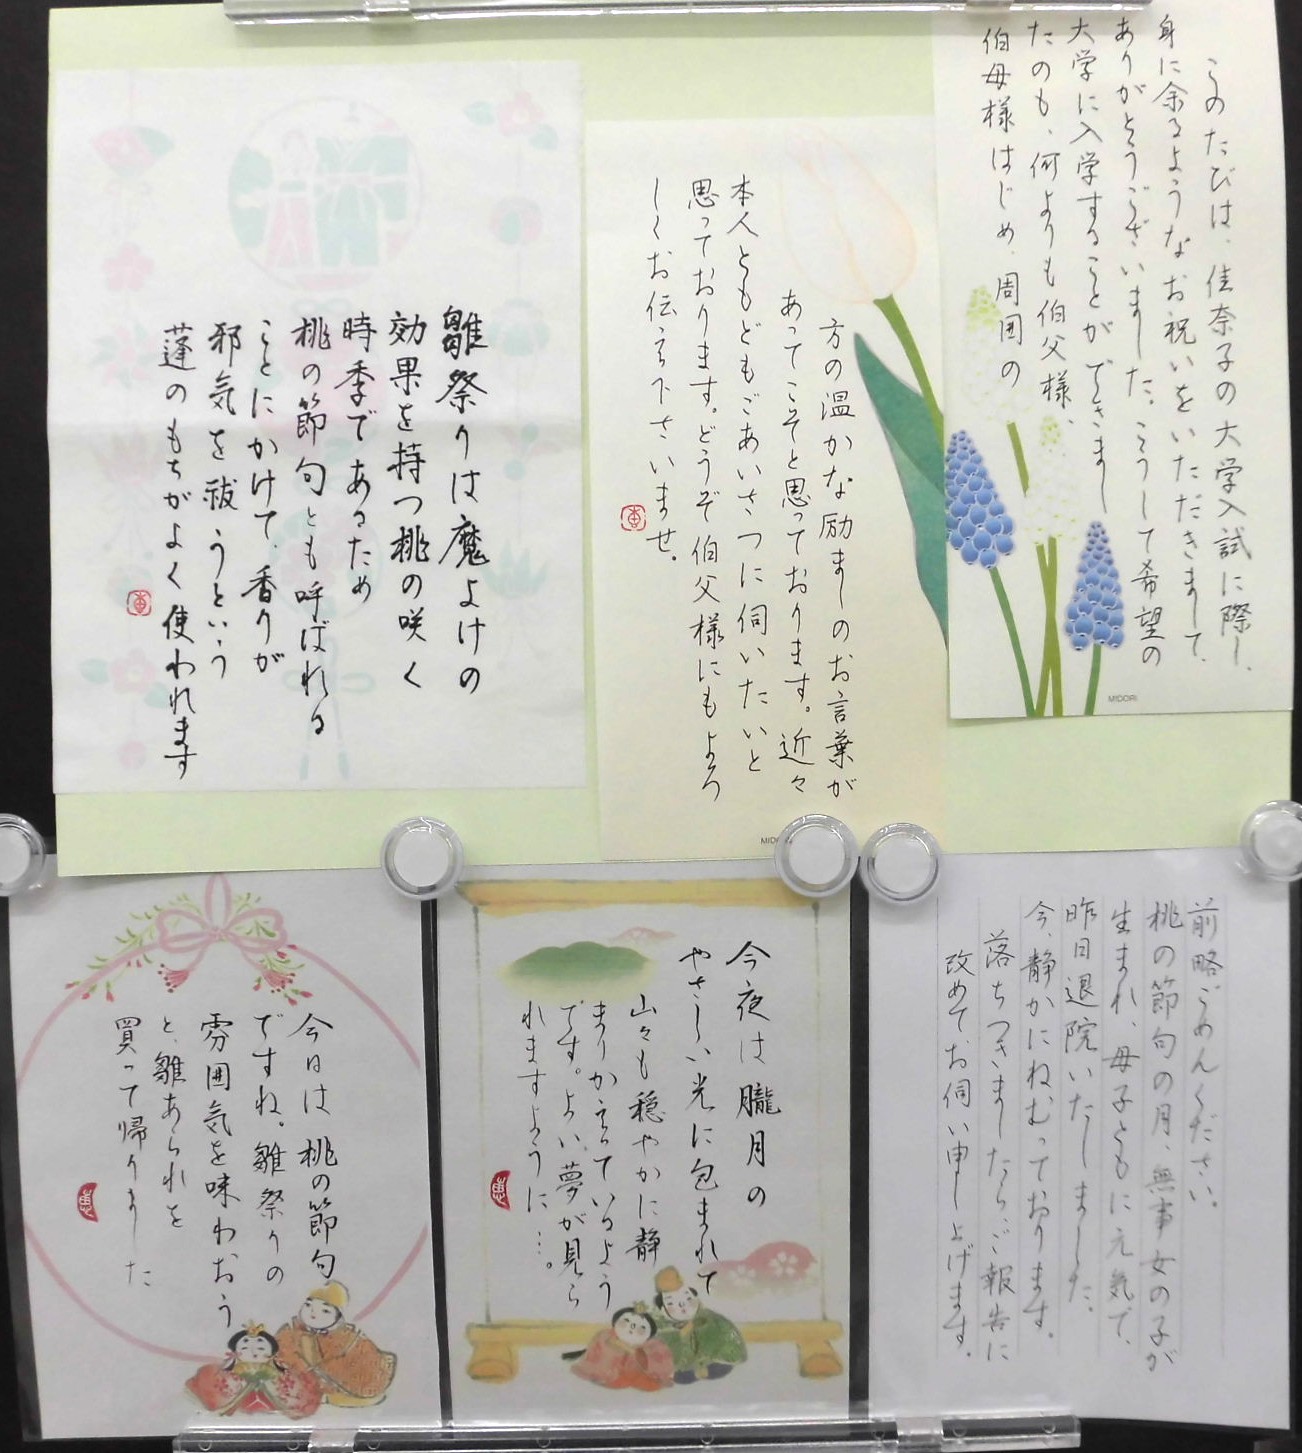 このたびは、佳奈子の大学入試に際し、
身に余るようなお祝いをいただきまして、
ありがとうございました。こうして希望の
大学に入学することができまし
たのも、何よりも伯父様、
伯母様はじめ、周囲の
方の温かな励ましのお言葉が
あってこそと思っております。近々
本人ともどもごあいさつに伺いたいと
思っております。どうぞ伯父様にもよろ
しくお伝え下さいませ。
MIDORI
MIDORI
雛祭りは魔よけの
効果を持つ桃の咲く
時季であるため
桃の節句とも呼ばれる
ことにかけて、香りが
邪気を祓うという
蓬のもちがよく使われます
前略ごめんください。
桃の節句の月、無事女の子が
生まれ、母子ともに元気で、
昨日退院いたしました。
今、静かにねむっております。
落ちつきましたらご報告に
改めてお伺い申し上げます。
今夜は朧月の
やさしい光に包まれて
山々も穏やかに静
まりかえっているよう
です。よい夢が見ら
れますように…。
恵
今日は桃の節句
ですね。雛祭りの
雰囲気を味わおう
と、雛あられを
買って帰りました
恵